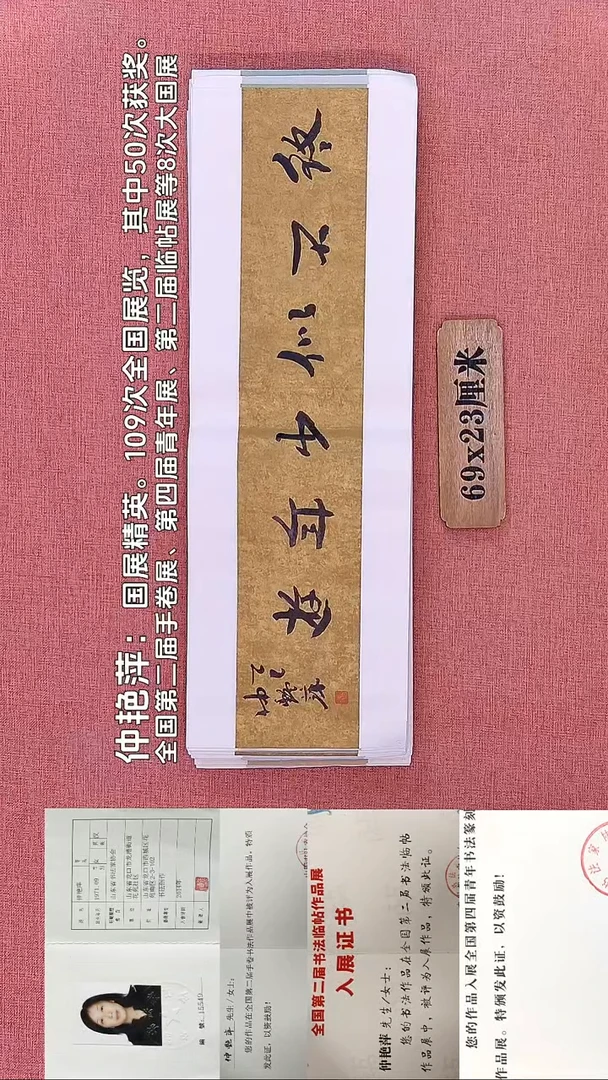 仲艳萍：国展精英。109次全国展览，其中50次获奖。
全国第二届手卷展、第四届青年展、第二届临帖展等8次大国展
终不似少年游
乙巳
69x23厘米
山东省书法家协会
先生/女士：
您的作品在全国第二届手卷书法作品展中被评为入展作品，特颁
发此证，以资鼓励！
全国第二届书法临帖作品展
入展证书
仲艳萍 先生/女士：
您的书法作品在全国第二届书法临帖
作品展中，被评为入展作品，特颁此证。
您的作品入展全国第四届青年书法篆刻
作品展。特颁发此证，以资鼓励！